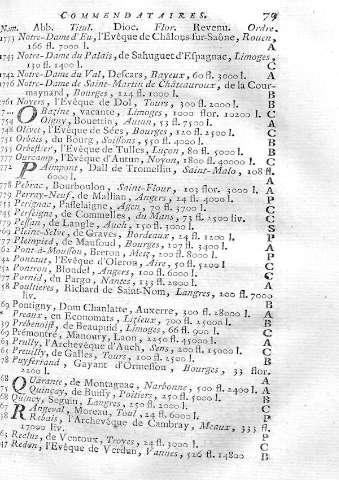 COMMENDATAIRES. 79
Nom. Abb. Titul. Dioc. Flor. Revenu. Ordre.
1773 Notre-Dame d'Eu, l'Evêque de Châlons-sur-Saône, Rouen,
166 fl. 7000 l. A
1745 Notre-Dame du Palais, de Sahuguet d'Espagnac, Limoges,
130 fl. 1400 l. C
1742 Notre-Dame du Val, Descars, Bayeux, 60 fl. 3000 l. A
1776 Notre-Dame de Saint-Martin de Châteauroux, de la Cour-
maynard, Bourges, 124 fl. 1000 l. B
1761 Noyers, l'Evêque de Dol, Tours, 300 fl. 2000 l. B
OBazine, vacante, Limoges, 1000 flor. 10200 l. C
754 Oigny, Bouettin, Autun, 53 fl. 7500 l. A
748 Olivet, l'Evêque de Sées, Bourges, 120 fl. 2500 l. C
751 Orbais, du Bourg, Soissons, 550 fl. 4000 l. B
755 Orbestier, l'Evêque de Tulles, Luçon, 80 fl. 5000 l. B
777 Ourcamp, l'Evêque d'Autun, Noyon, 1800 fl. 40000 l. C
772 PAimpont, Dall de Tromellin, Saint-Malo, 108 fl.
6000 l. A
778 Pebrac, Bourboulon, Saint-Flour, 103 flor. 3000 l. A
779 Perray-Neuf, de Mallian, Angers, 24 fl. 4000 l. P
753 Perignac, Passelaigne, Agen, 70 fl. 3700 l. C
745 Perseigne, de Commelles, du Mans, 73 fl. 2500 liv. C
779 Pessan, de Langle, Auch, 150 fl. 3000 l. S
769 Pleine-Selve, de Graves, Bordeaux, 24 fl. 1200 l. P
777 Pleimpied, de Maufoud, Bourges, 107 fl. 3400 l. A
762 Pont-à-Mousson, Breton, Metz, 200 fl. 8000 l. P
742 Pontaut, l'Evêque d'Oleron, Aire, 50 fl. 5200 l. C
752 Pontron, Blondel, Angers, 100 fl. 6000 l. C
Pornid, du Pargo, Nantes, 133 fl. 2800 l. A
758 Poultieres, Richard de Saint-Nom, Langres, 200 fl. 7000
liv. B
769 Pontigny, Dom Chanlatte, Auxerre, 300 fl. 28000 l. C
Preaux, en Economats, Lizieux, 700 fl. 15000 l. B
Prébenoist, de Beaupuid, Limoges, 66 fl. 900 l. C
Prémontré, Manoury, Laon, 2250 fl. 45000 l. P
Prully, l'Archevêque d'Auch, Sens, 200 fl. 15000 l. C
Preuilly, de Galles, Tours, 100 fl. 2500 l. B
778 Puyferrand, Gayant d'Ormesson, Bourges, 33 flor.
2200 l. A
QUarante, de Montagnac, Narbonne, 500 fl. 2400 l. A
Quinçay, de Buisly, Poitiers, 250 fl. 5000 l. B
Quincy, Seguin, Langres, 250 fl. 2000 l. C
RAngeval, Moreau, Toul, 24 fl. 6000 l. P
Rebais, l'Archevêque de Cambray, Meaux, 333 fl.
17000 liv. B
Reclus, de Ventoux, Troyes, 24 fl. 3000 l. C
Redon, l'Evêque de Verdun, Vannes, 526 fl. 14800 B